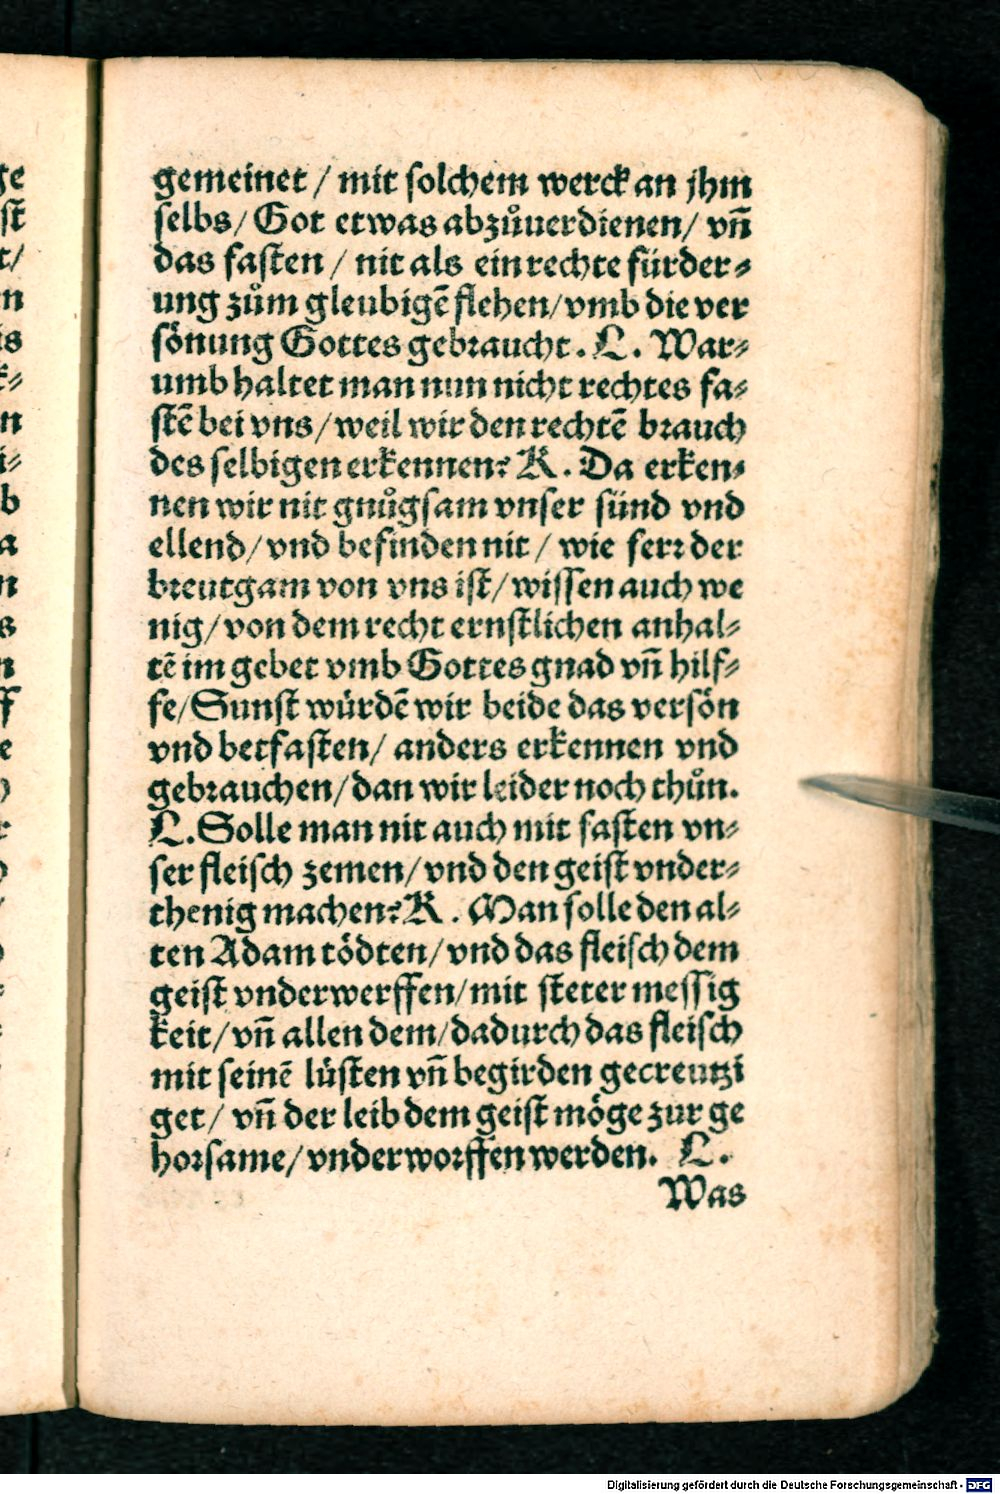 gemeinet / mit solchem werck an jhm
selbs / Got etwas abzůuerdienen / vñ
das fasten / nit als ein rechte fürder⸗
ung zům gleubigẽ flehen / vmb die ver
sönung Gottes gebraucht. L. War⸗
umb haltet man nun nicht rechtes fa⸗
stẽ bei vns / weil wir den rechtẽ brauch
des selbigen erkennen? K. Da erken⸗
nen wir nit gnůgsam vnser sünd vnd
ellend / vnd befinden nit / wie ferr der
breutgam von vns ist / wissen auch we
nig / von dem recht ernstlichen anhal⸗
tẽ im gebet vmb Gottes gnad vñ hilf⸗
fe / Sunst würdẽ wir beide das versön
vnd betfasten / anders erkennen vnd
gebrauchen / dan wir leider noch thůn.
L. Solle man nit auch mit fasten vn⸗
ser fleisch zemen / vnd den geist vnder⸗
thenig machen? K. Man solle den al⸗
ten Adam tödten / vnd das fleisch dem
geist vnderwerffen / mit steter messig
keit / vñ allen dem / dadurch das fleisch
mit seinẽ lüsten vñ begirden gecreutzi
get / vñ der leib dem geist möge zur ge
horsame / vnderworffen werden. L.
Was
Digitalisierung gefördert durch die Deutsche Forschungsgemeinschaft - DFG